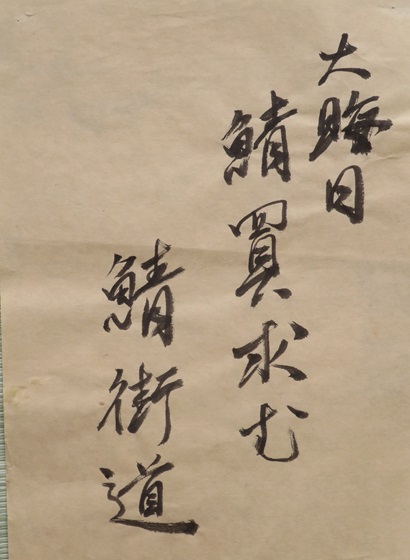 大晦日
鯖買求む
鯖街道